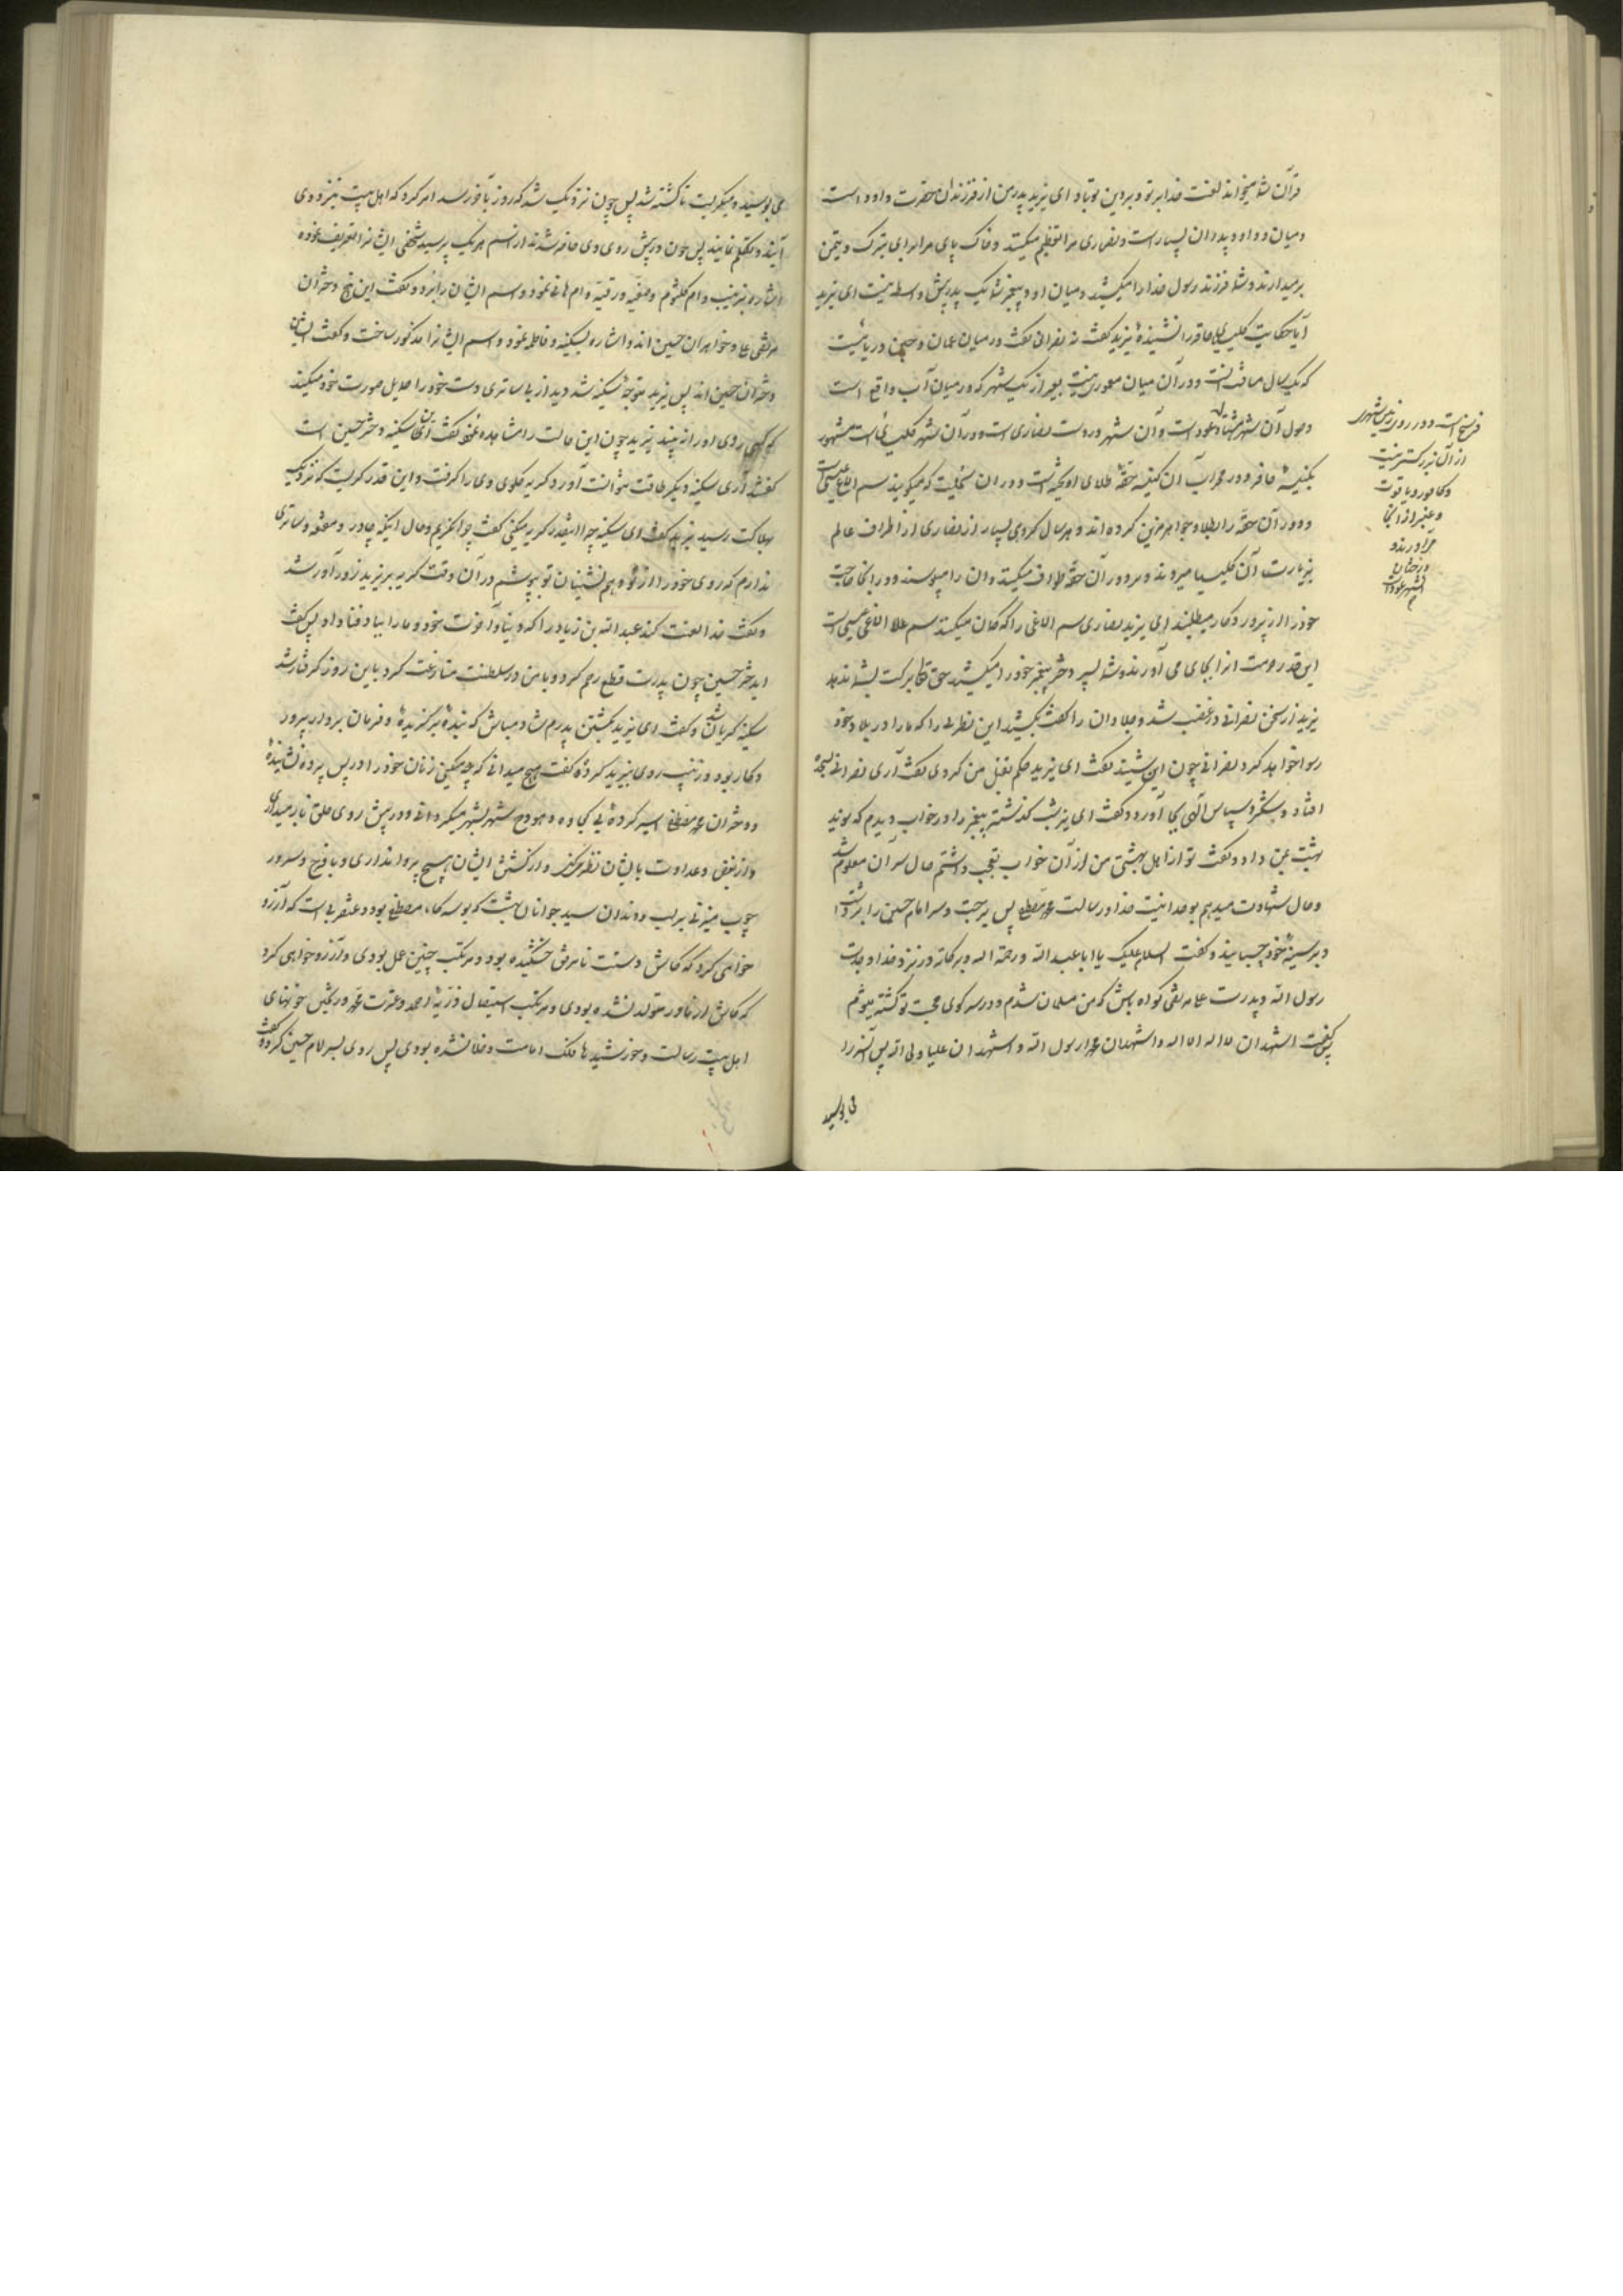 قرآن شما میخواند لعنت خدا بر تو و بر دین تو باد ای یزید پدر من از فرزندان حضرت داود است
و میان او و داود پدران بسیار است و نصاری مرا تعظیم میکنند و خاک پای مرا برای تبرک و تیمن
برمیدارند و شما فرزند رسول خدا را میکشید و میان او و پیغمبر شما یک پدر بیش واسطه نیست ای یزید
آیا حکایت کلیسیای حافر را نشنیدهٔ یزید گفت نه نصرانی گفت در میان عمان و چین دریائیست
که یکسال مسافت آنست و در آن میان معموری نیست بغیر از یک شهر که در میان آب واقع است
و طول آن شهر هشتاد فرسخ است و در روی زمین شهری
از آن بزرگتر نیست
و کافور و یاقوت
و عنبر از آنجا
می آورند و
درختان
آن شهر عود است
و آن شهر در دست نصاری است و در آن شهر کلیسائی است مشهور
بکنیسهٔ حافر و در محراب آن کنیسه حقهٔ طلای آویخته است و در آن سمیست که میگویند سم الاغ عیسی است
و دور آن حقه را بطلا و جواهر مزین کرده اند و هر سال گروهی بسیار از نصاری از اطراف عالم
بزیارت آن کلیسیا میروند و بر دور آن حقه طواف میکنند و آن را میبوسند و در آنجا حاجت
خود را از پروردگار میطلبند ای یزید نصاری سم الاغی را که گمان میکنند سم الاغ عیسی است
این قدر حرمت از برای آن بجای می آورند و شما پسر دختر پیغمبر خود را میکشید حق تعالی برکت بشما ندهد
یزید از سخن نصرانی در غضب شد و جلادان را گفت بکشید این نصرانی را که ما را در بلاد خود
رسوا خواهد کرد نصرانی چون این شنید گفت ای یزید حکم بقتل من کردی گفت آری نصرانی بسجده
افتاد و شکر و سپاس الهی بجای آورد و گفت ای یزید شب گذشته پیغمبر را در خواب دیدم که نوید
بهشت بمن داد و گفت تو از اهل بهشتی من از آن خواب تعجب داشتم حال سر آن معلوم شد
و حال شهادت میدهم بوحدانیت خدا و رسالت محمد مصطفی پس برجست و سر امام حسین را برداشت
و بر سینهٔ خود چسبانید و گفت السلام علیک یا ابا عبد الله و رحمة الله و برکاته در نزد خدا و جدت
رسول الله و پدرت علی مرتضی گواه باش که من مسلمان شدم و در سر کوی محبت تو کشته میشوم
پس گفت اشهد ان لا اله الا الله و اشهد ان محمدا رسول الله و اشهد ان علیا ولی الله پس آن سر را
می بوسید
می بوسید و میگریست تا کشته شد پس چون نزدیک شد که روز بآخر رسد امر کرد که اهل بیت بنزد وی
آیند و تکلم نمایند پس چون در پیش روی وی حاضر شدند از اسم هر یک پرسید شخصی ایشانرا تعریف نموده
اشاره بزینب و ام کلثوم و صفیه و رقیه و ام هانی نمود و اسم ایشان را برد و گفت این پنج دختران
مرتضی علی و خواهران حسین اند و اشاره بسکینه و فاطمه نمود و اسم ایشانرا مذکور ساخت و گفت ایشان
دختران حسین اند پس یزید متوجه سکینه شد دید از بی ساتری دست خود را حایل صورت خود میکند
که کسی روی او را نه بیند یزید چون این حالت را مشاهده نمود گفت این سکینه دختر حسین است
گفتند آری سکینه دیگر طاقت نتوانست آورد گریه گلوی وی را گرفت و این قدر گریست که نزدیک
بهلاکت رسید یزید گفت ای سکینه چرا اینقدر گریه میکنی گفت چرا نگریم و حال اینکه چادر و مقنعه و ساتری
ندارم که روی خود را از تو و هم نشینان تو بپوشم در آن وقت گریه بر یزید زورآور شد
و گفت خدا لعنت کند عبید الله بن زیاد را که دنیا و آخرت خود و ما را بباد فنا داد پس گفت
ای دختر حسین چون پدرت قطع رحم کرد و با من در سلطنت منازعت کرد باین روز گرفتار شد
سکینه گریان شد و گفت ای یزید بکشتن پدرم شاد مباش که بندهٔ برگزیده و فرمان بردار پرور
دگار بود و زینب روی بیزید کرده گفت هیچ میدانی که چه میکنی زنان خود را در پس پرده نشانیدهٔ
و دختران محمد مصطفی اسیر کردهٔ بی کجاوه و هودج شهر بشهر میگردانی و در پیش روی خلق باز میداری
و از بغض و عداوت بایشان نظر میکنی و از کشتن ایشان هیچ پروا نداری و با فرح و سرور
چوب میزنی بر لب و دندان سید جوانان بهشت که بوسه گاه مصطفی بود و عنقریب است که آرزو
خواهی کرد که کاش دستت تا مرفق خشکیده بود و مرتکب چنین عمل نبودی و آرزو خواهی کرد
که کاش از مادر متولد نشده بودی و مرتکب استیصال ذریهٔ احمد و عترت محمد و ریختن خونهای
اهل بیت رسالت و خورشیدهای فلک امامت و خلافت نشده بودی پس روی بسر امام حسین کرد و گفت